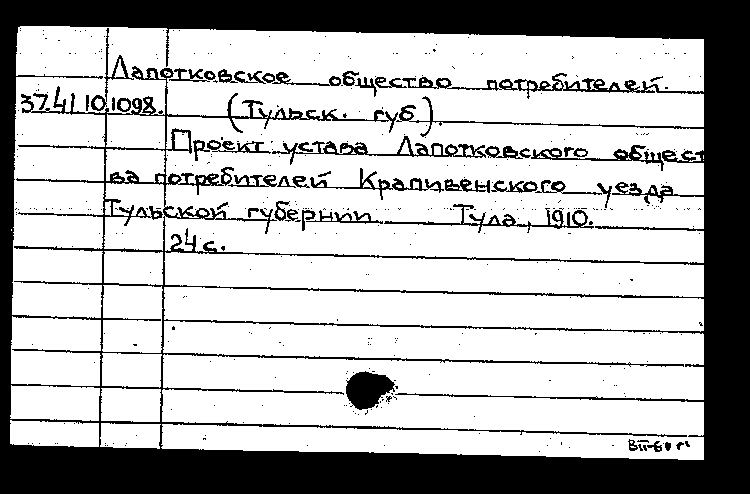 Лапотковское общество потребителей.
37.41 10.1098. (Тульск. губ).
Проект устава Лапотковского общест
ва потребителей Крапивенского уезда
Тульской губернии Тула, 1910.
24 с.